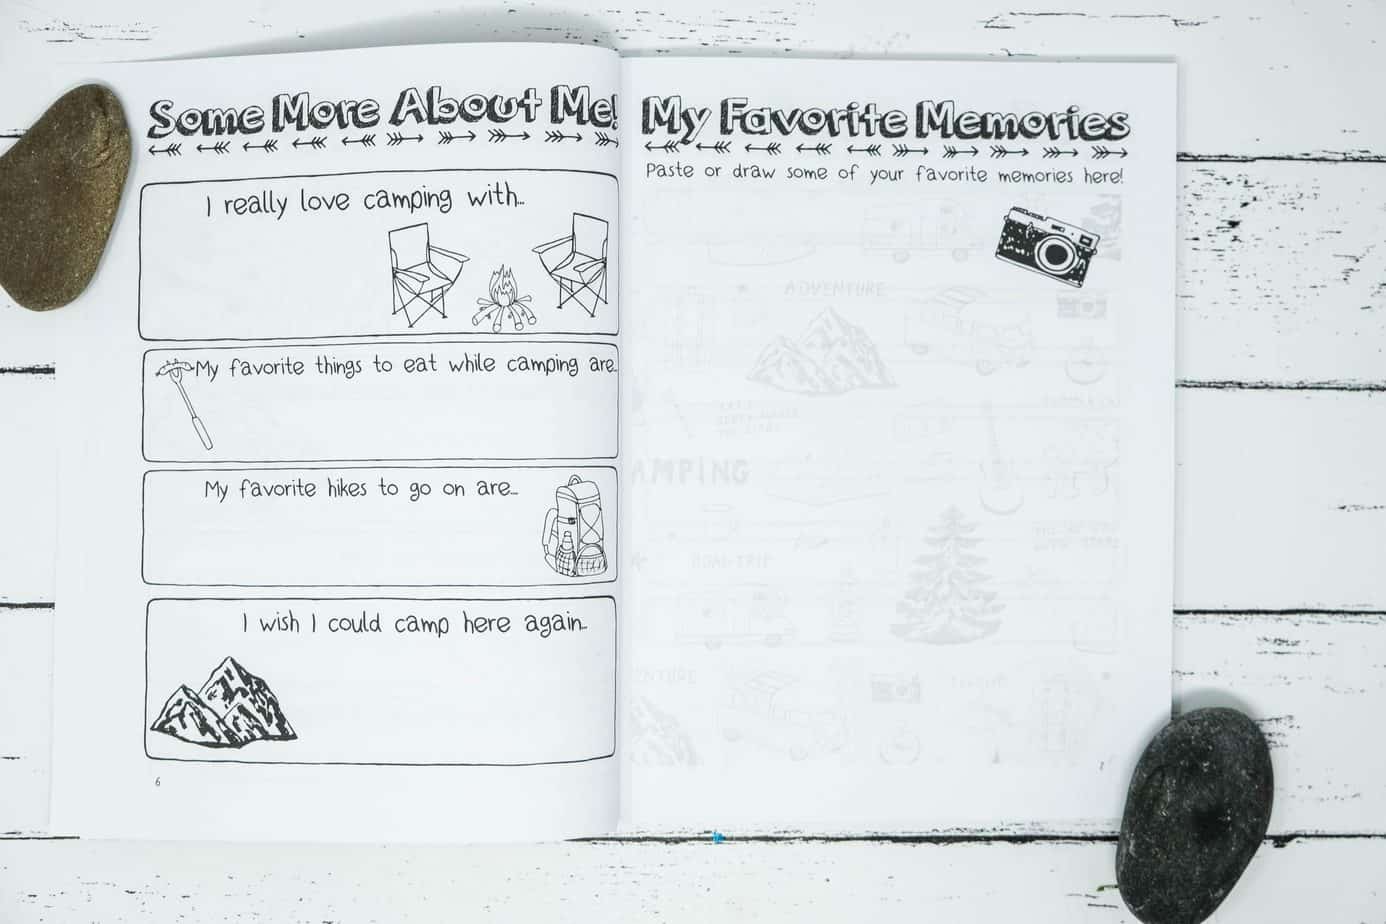 Some More About Me!
I really love camping with...
My favorite things to eat while camping are..
My favorite hikes to go on are...
I wish I could camp here again..
6
My Favorite Memories
Paste or draw some of your favorite memories here!
ADVENTURE
AMPING
ROAD TRIP